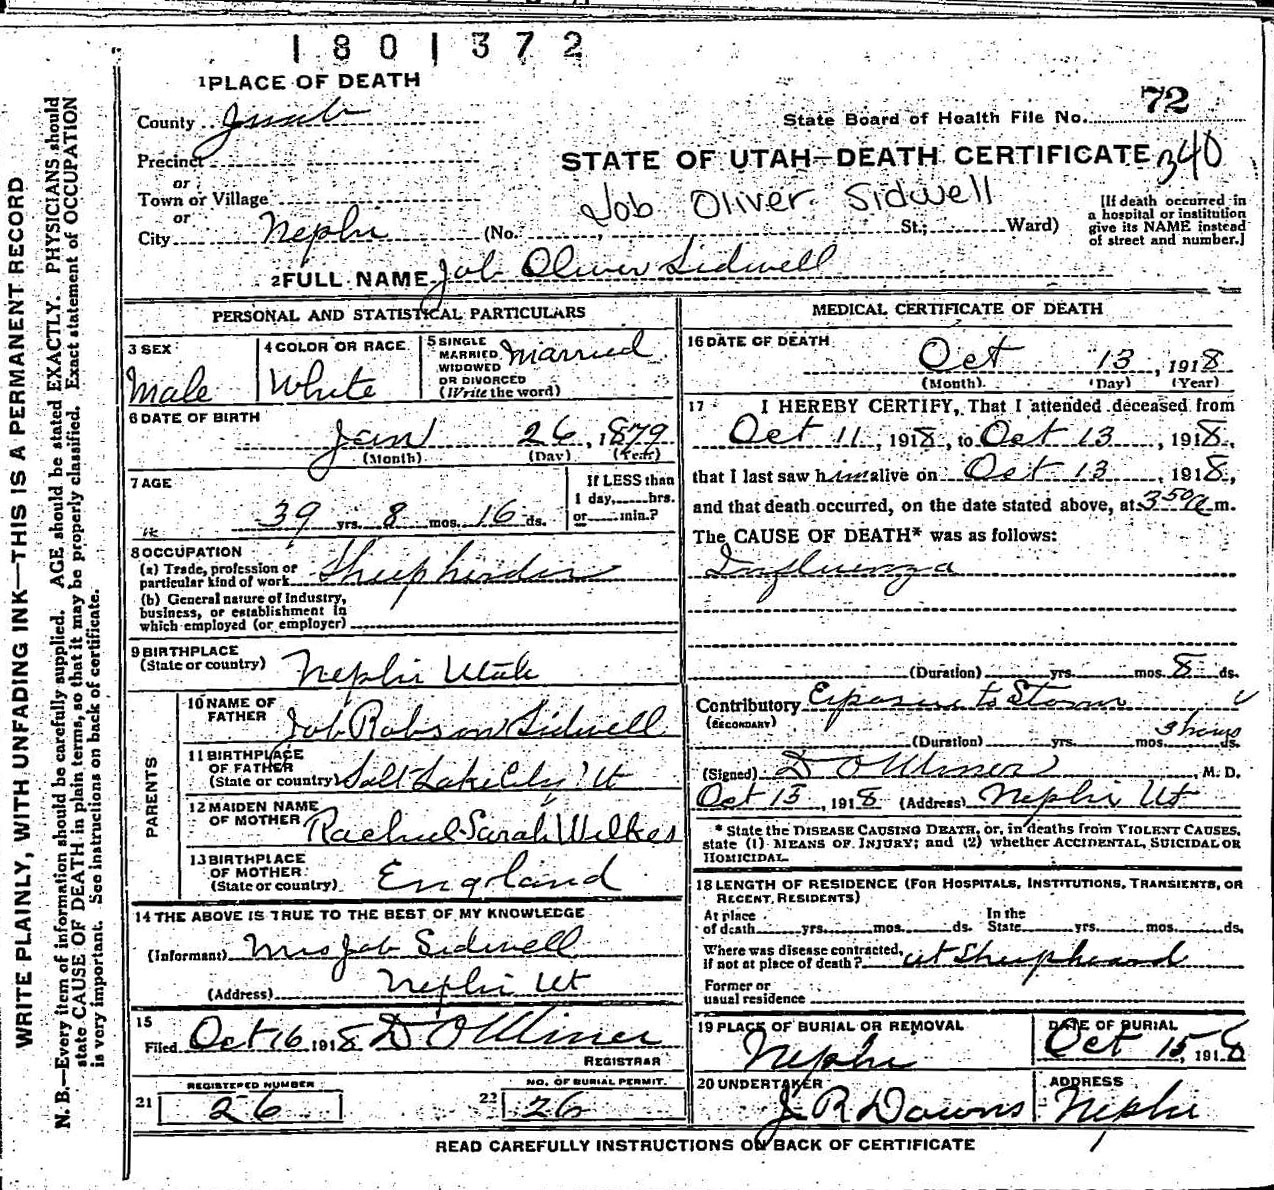 1801372
1 PLACE OF DEATH
County Juab
State Board of Health File No. 72
Precinct
STATE OF UTAH—DEATH CERTIFICATE 340
or
Town or Village
Job Oliver Sidwell
or
City Nephi (No. St.; Ward)
[If death occurred in
a hospital or institution
give its NAME instead
of street and number.]
2 FULL NAME Job Oliver Sidwell
PERSONAL AND STATISTICAL PARTICULARS
3 SEX
Male
4 COLOR OR RACE
White
5 SINGLE
MARRIED
WIDOWED
OR DIVORCED
(Write the word)
Married
6 DATE OF BIRTH
Jan 26, 1879
(Month) (Day) (Year)
7 AGE
39 yrs. 8 mos. 16 ds.
If LESS than
1 day, hrs.
or min.?
8 OCCUPATION
(a) Trade, profession or
particular kind of work Sheepherder
(b) General nature of Industry,
business, or establishment in
which employed (or employer)
9 BIRTHPLACE
(State or country) Nephi Utah
PARENTS
10 NAME OF
FATHER Job Robson Sidwell
11 BIRTHPLACE
OF FATHER
(State or country) Salt Lake City, Ut
12 MAIDEN NAME
OF MOTHER Rachel Sarah Wilkes
13 BIRTHPLACE
OF MOTHER
(State or country) England
14 THE ABOVE IS TRUE TO THE BEST OF MY KNOWLEDGE
(Informant) Mrs Job Sidwell
(Address) Nephi Ut
15
Filed Oct 16 1918
REGISTRAR
REGISTERED NUMBER
21 26
NO. OF BURIAL PERMIT.
22 26
MEDICAL CERTIFICATE OF DEATH
16 DATE OF DEATH
Oct 13, 1918
(Month) (Day) (Year)
17 I HEREBY CERTIFY, That I attended deceased from
Oct 11, 1918, to Oct 13, 1918,
that I last saw him alive on Oct 13, 1918,
and that death occurred, on the date stated above, at 3 50 a m.
The CAUSE OF DEATH* was as follows:
Influenza
(Duration) yrs. mos. 8 ds.
Contributory Exposure to Storm
(SECONDARY)
3 hours
(Duration) yrs. mos. ds.
(Signed) , M. D.
Oct 15, 1918 (Address) Nephi Ut
* State the DISEASE CAUSING DEATH, or, in deaths from VIOLENT CAUSES,
state (1) MEANS OF INJURY; and (2) whether ACCIDENTAL, SUICIDAL OR
HOMICIDAL.
18 LENGTH OF RESIDENCE (FOR HOSPITALS, INSTITUTIONS, TRANSIENTS, OR
RECENT RESIDENTS)
At place
of death yrs. mos. ds.
In the
State yrs. mos. ds.
Where was disease contracted,
if not at place of death? at Sheepheard
Former or
usual residence
19 PLACE OF BURIAL OR REMOVAL
Nephi
DATE OF BURIAL
Oct 15, 1918
20 UNDERTAKER
J R Downs
ADDRESS
Nephi
READ CAREFULLY INSTRUCTIONS ON BACK OF CERTIFICATE
WRITE PLAINLY, WITH UNFADING INK—THIS IS A PERMANENT RECORD
N. B.—Every item of information should be carefully supplied. AGE should be stated EXACTLY. PHYSICIANS should
state CAUSE OF DEATH in plain terms, so that it may be properly classified. Exact statement of OCCUPATION
is very important. See instructions on back of certificate.